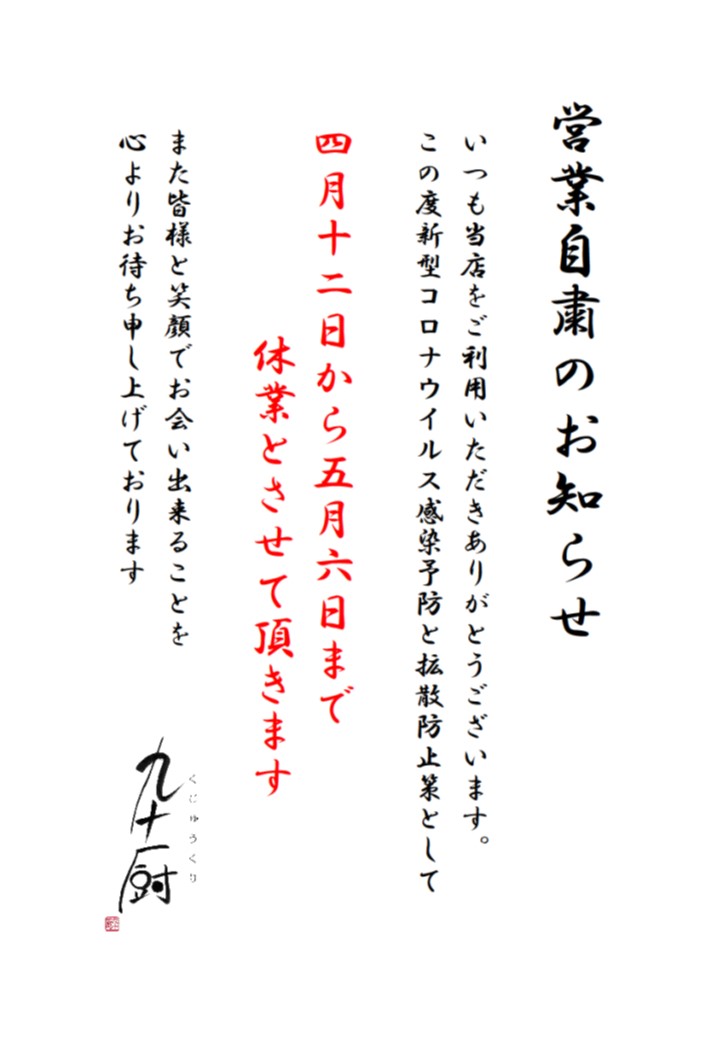 営業自粛のお知らせ
いつも当店をご利用いただきありがとうございます。
この度新型コロナウイルス感染予防と拡散防止策として
四月十二日から五月六日まで
休業とさせて頂きます
また皆様と笑顔でお会い出来ることを
心よりお待ち申し上げております
くじゅうくり
九十厨